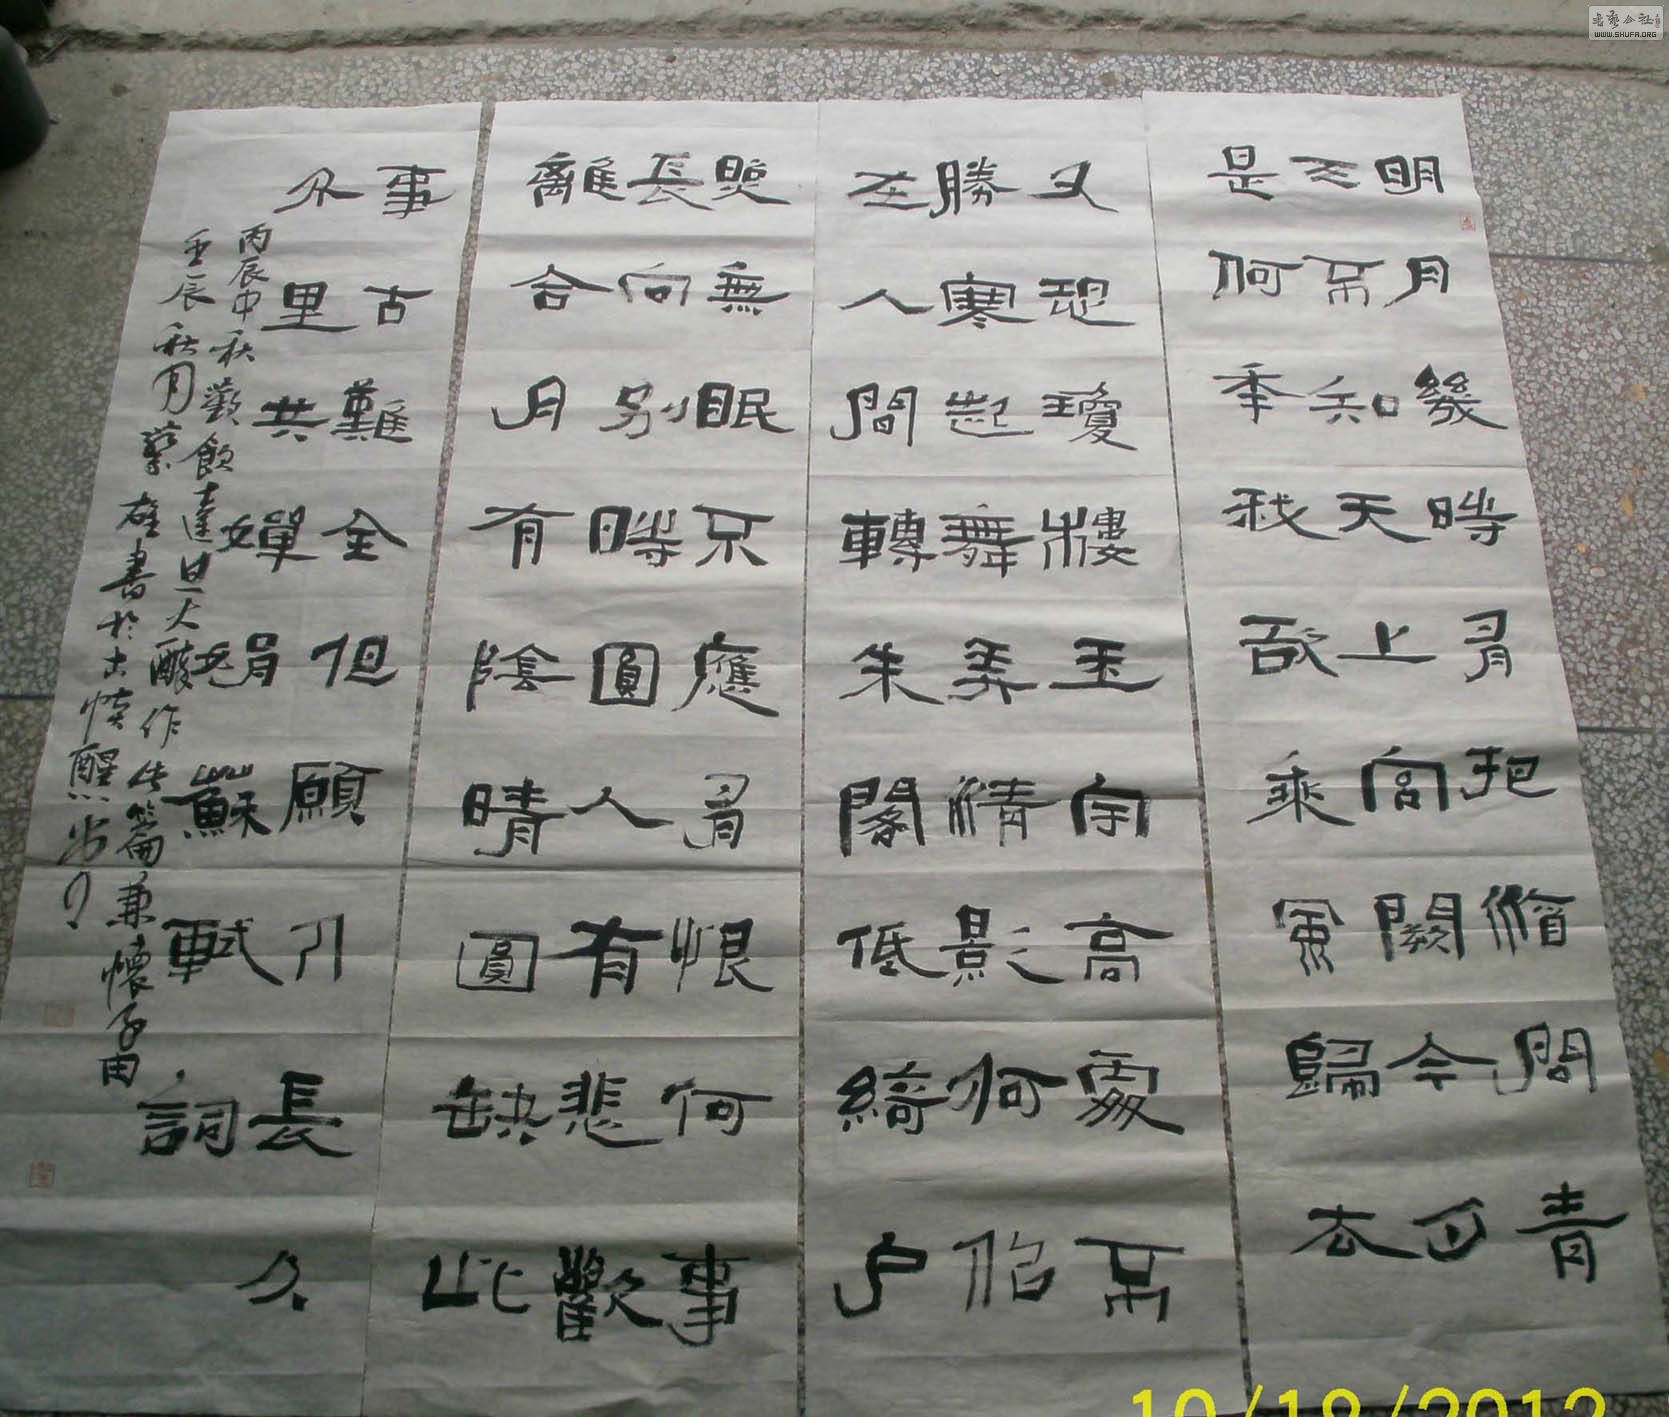 明月幾時有把酒問青
天不知天上宮闕今夕
是何年我欲乘風歸去
又恐瓊樓玉宇高處不
勝寒起舞弄清影何似
在人間轉朱閣低綺户
照無眠不應有恨何事
長向别時圓人有悲歡
離合月有陰晴圓缺此
事古難全但願人長久
千里共嬋娟蘇軾詞
丙辰中秋歡飲達旦大醉作此篇兼懷子由
壬辰秋月蔡雄書於古
书艺公社
WWW.SHUFA.ORG
10/18/2012